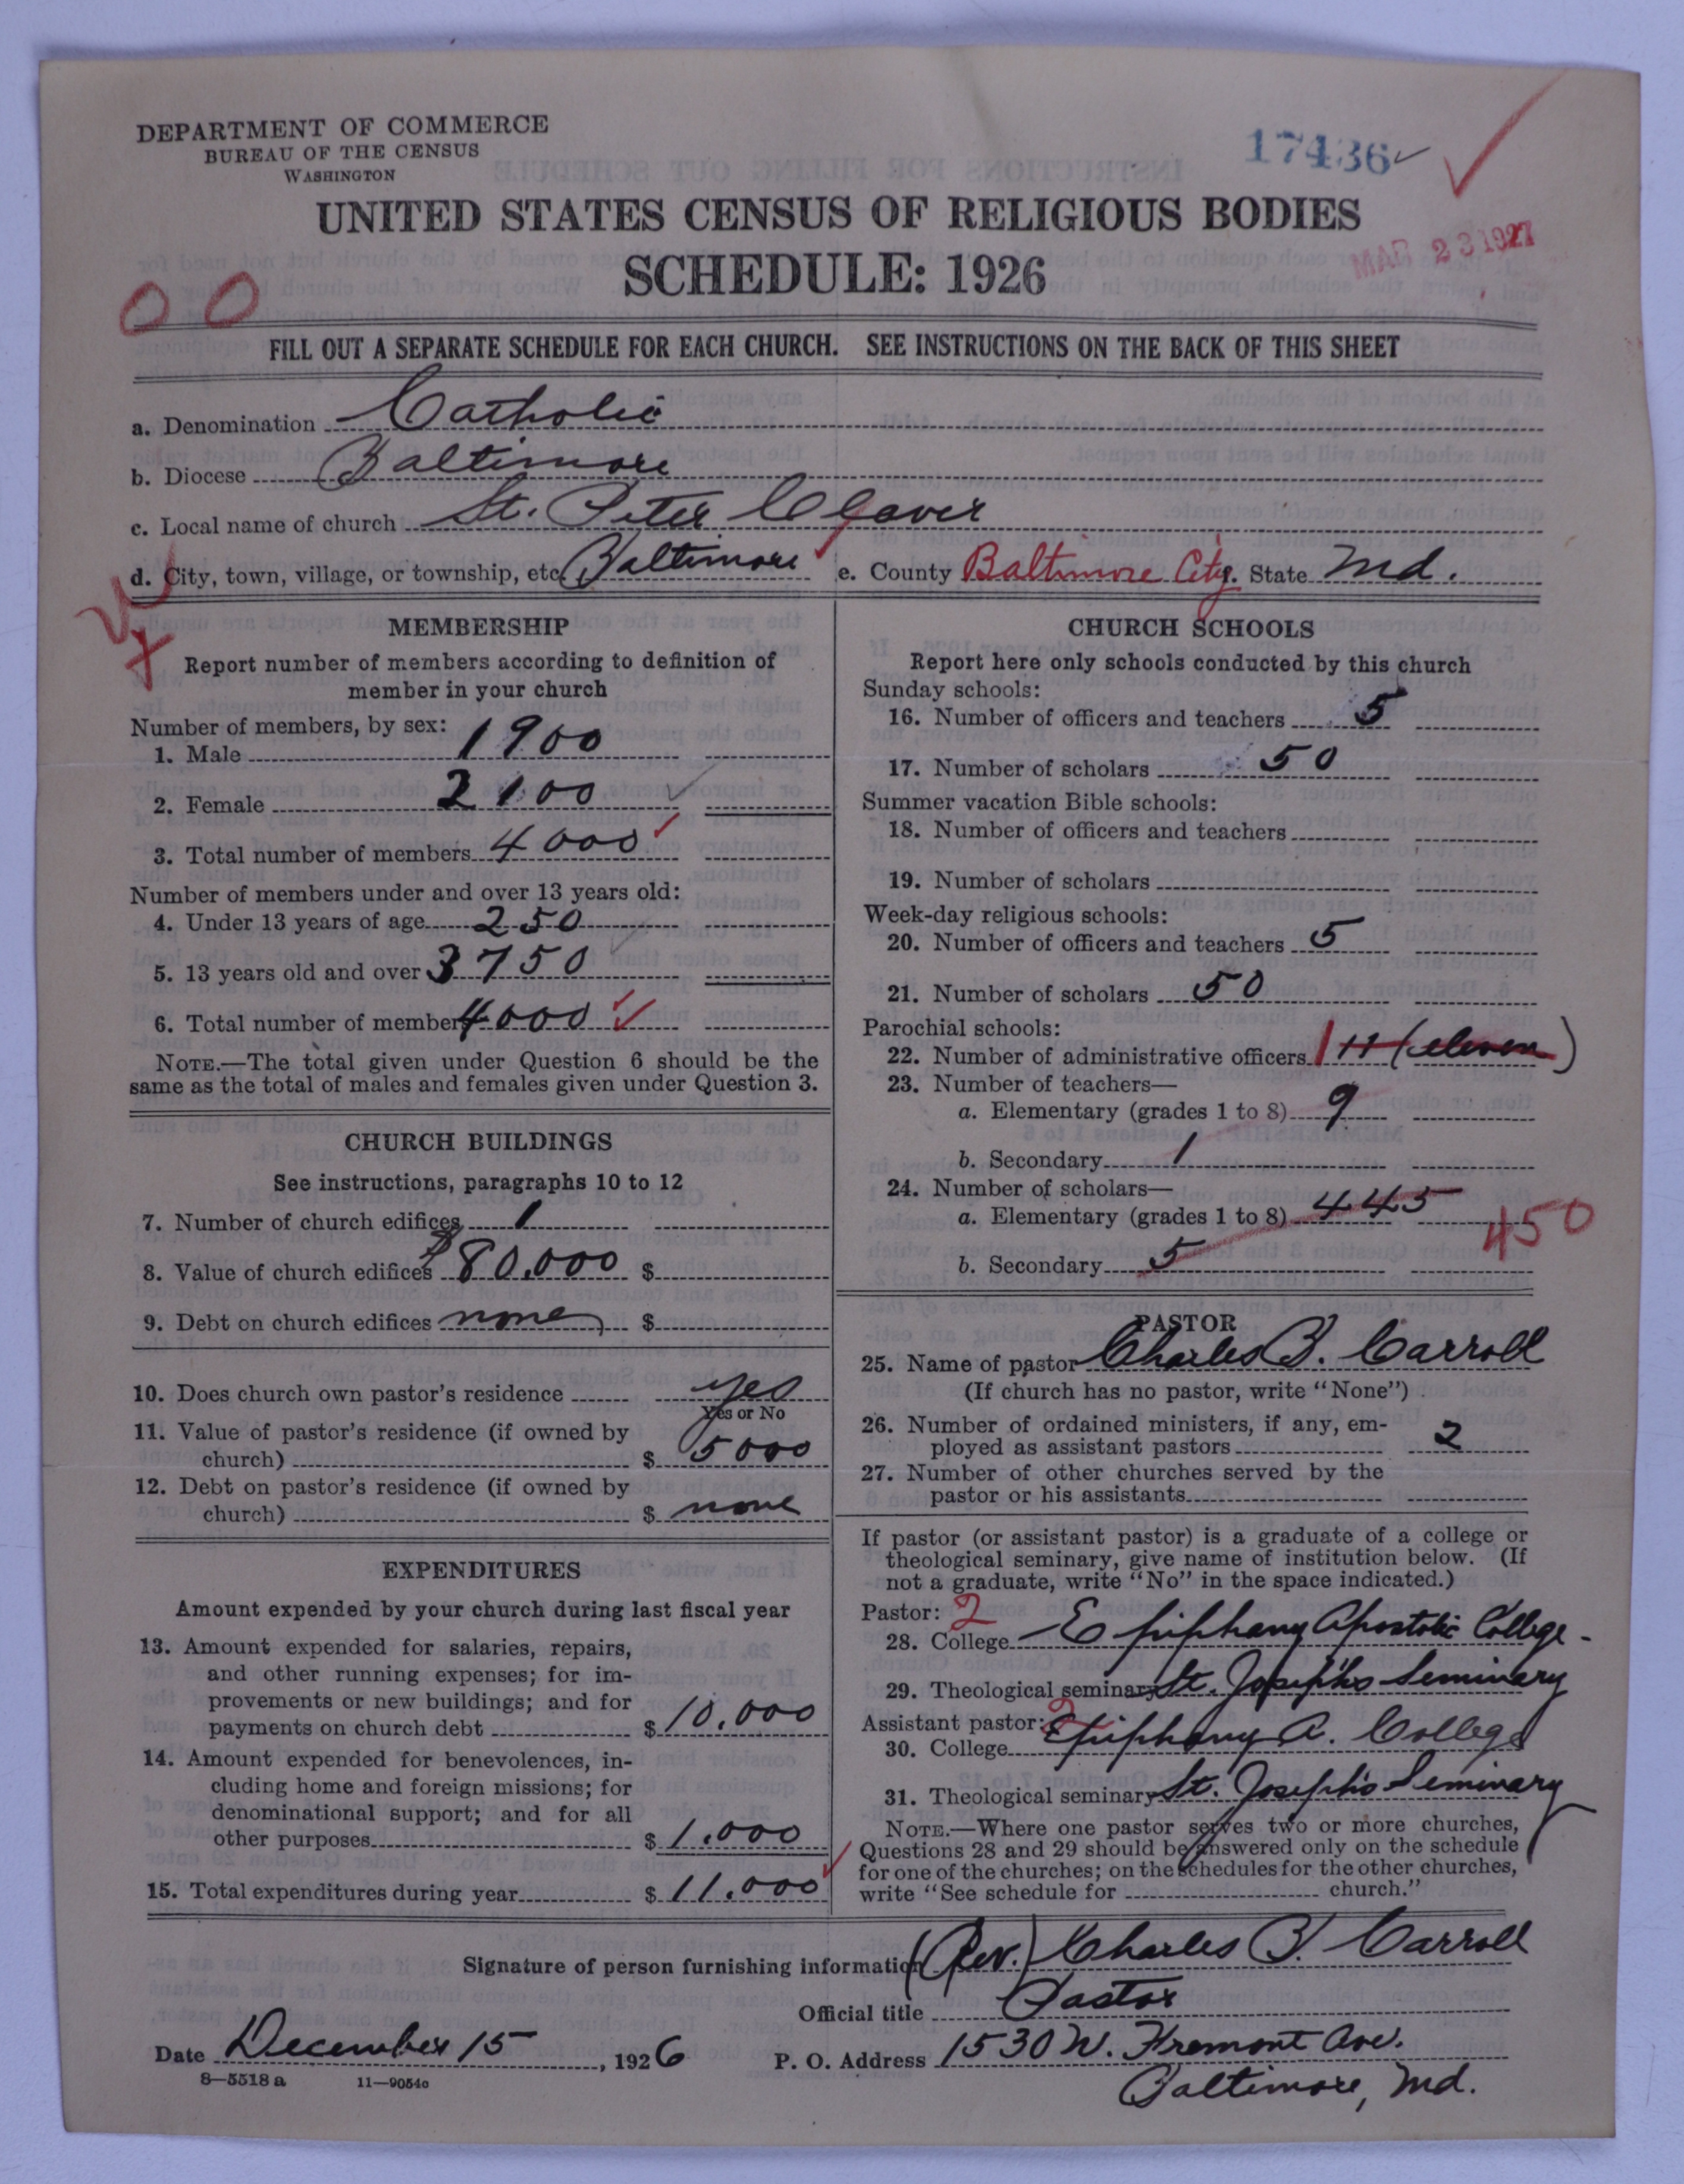 DEPARTMENT OF COMMERCE
BUREAU OF THE CENSUS
WASHINGTON
17436
UNITED STATES CENSUS OF RELIGIOUS BODIES
SCHEDULE: 1926
MAR 23 1927
00
FILL OUT A SEPARATE SCHEDULE FOR EACH CHURCH. SEE INSTRUCTIONS ON THE BACK OF THIS SHEET
a. Denomination Catholic
b. Diocese Baltimore
c. Local name of church St. Peter Claver
d. City, town, village, or township, etc. Baltimore e. County Baltimore City f. State Md.
MEMBERSHIP
Report number of members according to definition of
member in your church
Number of members, by sex:
1. Male 1900
2. Female 2100
3. Total number of members 4000
Number of members under and over 13 years old:
4. Under 13 years of age 250
5. 13 years old and over 3750
6. Total number of members 4000
NOTE.—The total given under Question 6 should be the
same as the total of males and females given under Question 3.
CHURCH BUILDINGS
See instructions, paragraphs 10 to 12
7. Number of church edifices 1
8. Value of church edifices $80.000 $
9. Debt on church edifices none $
10. Does church own pastor's residence yes
Yes or No
11. Value of pastor's residence (if owned by
church) $ 5000
12. Debt on pastor's residence (if owned by
church) $ none
EXPENDITURES
Amount expended by your church during last fiscal year
13. Amount expended for salaries, repairs,
and other running expenses; for im-
provements or new buildings; and for
payments on church debt $ 10.000
14. Amount expended for benevolences, in-
cluding home and foreign missions; for
denominational support; and for all
other purposes $ 1.000
15. Total expenditures during year $ 11.000
CHURCH SCHOOLS
Report here only schools conducted by this church
Sunday schools:
16. Number of officers and teachers 5
17. Number of scholars 50
Summer vacation Bible schools:
18. Number of officers and teachers
19. Number of scholars
Week-day religious schools:
20. Number of officers and teachers 5
21. Number of scholars 50
Parochial schools:
22. Number of administrative officers 1 11 (eleven)
23. Number of teachers—
a. Elementary (grades 1 to 8) 9
b. Secondary 1
24. Number of scholars—
a. Elementary (grades 1 to 8) 445
450
b. Secondary 5
PASTOR
25. Name of pastor Charles B. Carroll
(If church has no pastor, write "None")
26. Number of ordained ministers, if any, em-
ployed as assistant pastors 2
27. Number of other churches served by the
pastor or his assistants
If pastor (or assistant pastor) is a graduate of a college or
theological seminary, give name of institution below. (If
not a graduate, write "No" in the space indicated.)
Pastor: 2
28. College Epiphany Apostolic College.
29. Theological seminary St. Joseph's Seminary
Assistant pastor: 2
30. College Epiphany A. College
31. Theological seminary St. Joseph's Seminary
NOTE.—Where one pastor serves two or more churches,
Questions 28 and 29 should be answered only on the schedule
for one of the churches; on the schedules for the other churches,
write "See schedule for church."
Signature of person furnishing information (Rev.) Charles B. Carroll
Official title Pastor
Date December 15, 1926 P. O. Address 1530 W. Fremont Ave.
Baltimore, Md.
8—5518 a 11—9054o